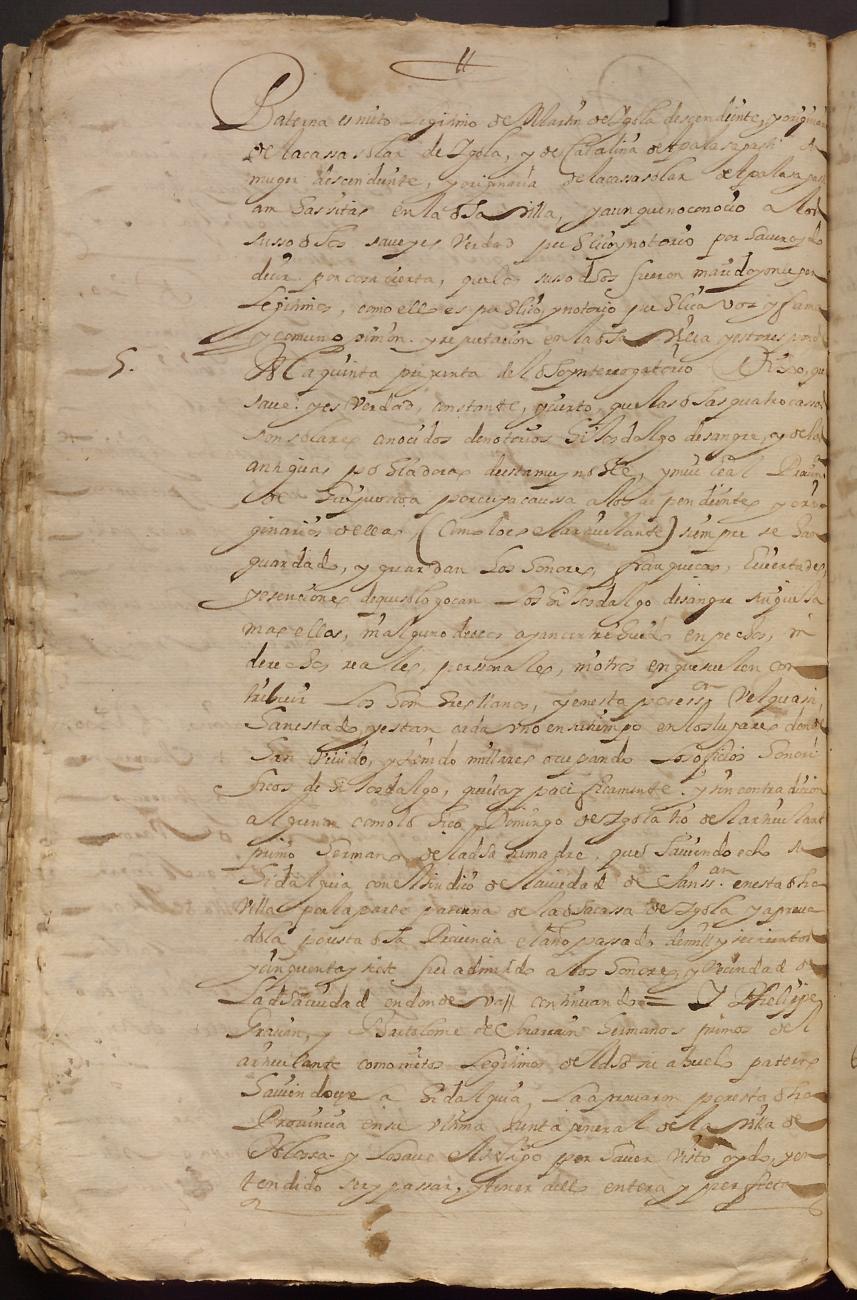 Paterna es nieto legitimo de Martin de Ygola descendiente, y originari
de la cassa solar de Ygola, y de Catalina de
muger descendiente, y originaria de la cassa solar de
am bas sitas en la dha villa, y aunque no conocio a los
suso dhos save y es verdad publico y notorio por haver oydo
deçir por cossa cierta, que los susso dhos fueron marido y muger
legitimos, como ello es publico, y notorio publica voz y fama
y comun opinion. y reputazion en la dha Villa y esto responde
5. A la quinta pregunta del dho ynterrogatorio Dixo, que
save. y es Verdad, constante, y cierto, que las dhas quatro cassas
son solares conocidos de notorios hijos dalgo de sangre, y de los
antiguos pobladores de esta muy noble, y muy leal Provin
de Guipuzcoa por cuya caussa a los dependientes y ori
ginarios de ellas, (Como lo es el articulante) siempre se han
guardado, y guardan los honores, franqueças, livertades,
y esenciones de que solo goçan los hijos dalgo de sangre sin que ja
mas ellos, ni alguno de ellos ayan contribuido en pechos, ni
derechos reales, personales, ni otros en que suelen con
tribuir los hombres llanos, y en esta posess.on Vel quasi,
han estado, y estan cada vno en su tiempo en los lugares donde
han vivido, y tenido millares ocupando los oficios honori
ficos de hijos dalgo, quieta y pacificamente. y sin contradicion
alguna como lo hico Domingo de Ygola tio del articulante
primo hermano de la dha su madre, pues haviendo echo su
hidalguia con el sindico de la ciudad de en esta dha
Villa por la parte paterna de la dha cassa de Ygola y aprova
dola por esta dha Provincia el año passado de mill y seiscientos
y cinquenta y siete fue admitido a los honores, y Vecindad de
la dha ciudad en donde va continuando = Y Phelipe
y Bartolome de hermanos primos del
articulante como nietos legitimos del dho su abuelo paterno
haviendo hidalguia, la aprovaron por esta dha
Provincia en su vltima Junta general de la Villa de
y lo save el testigo por haver visto oydo, y en
tendido ser y passar, y tener dello entera y perfecta